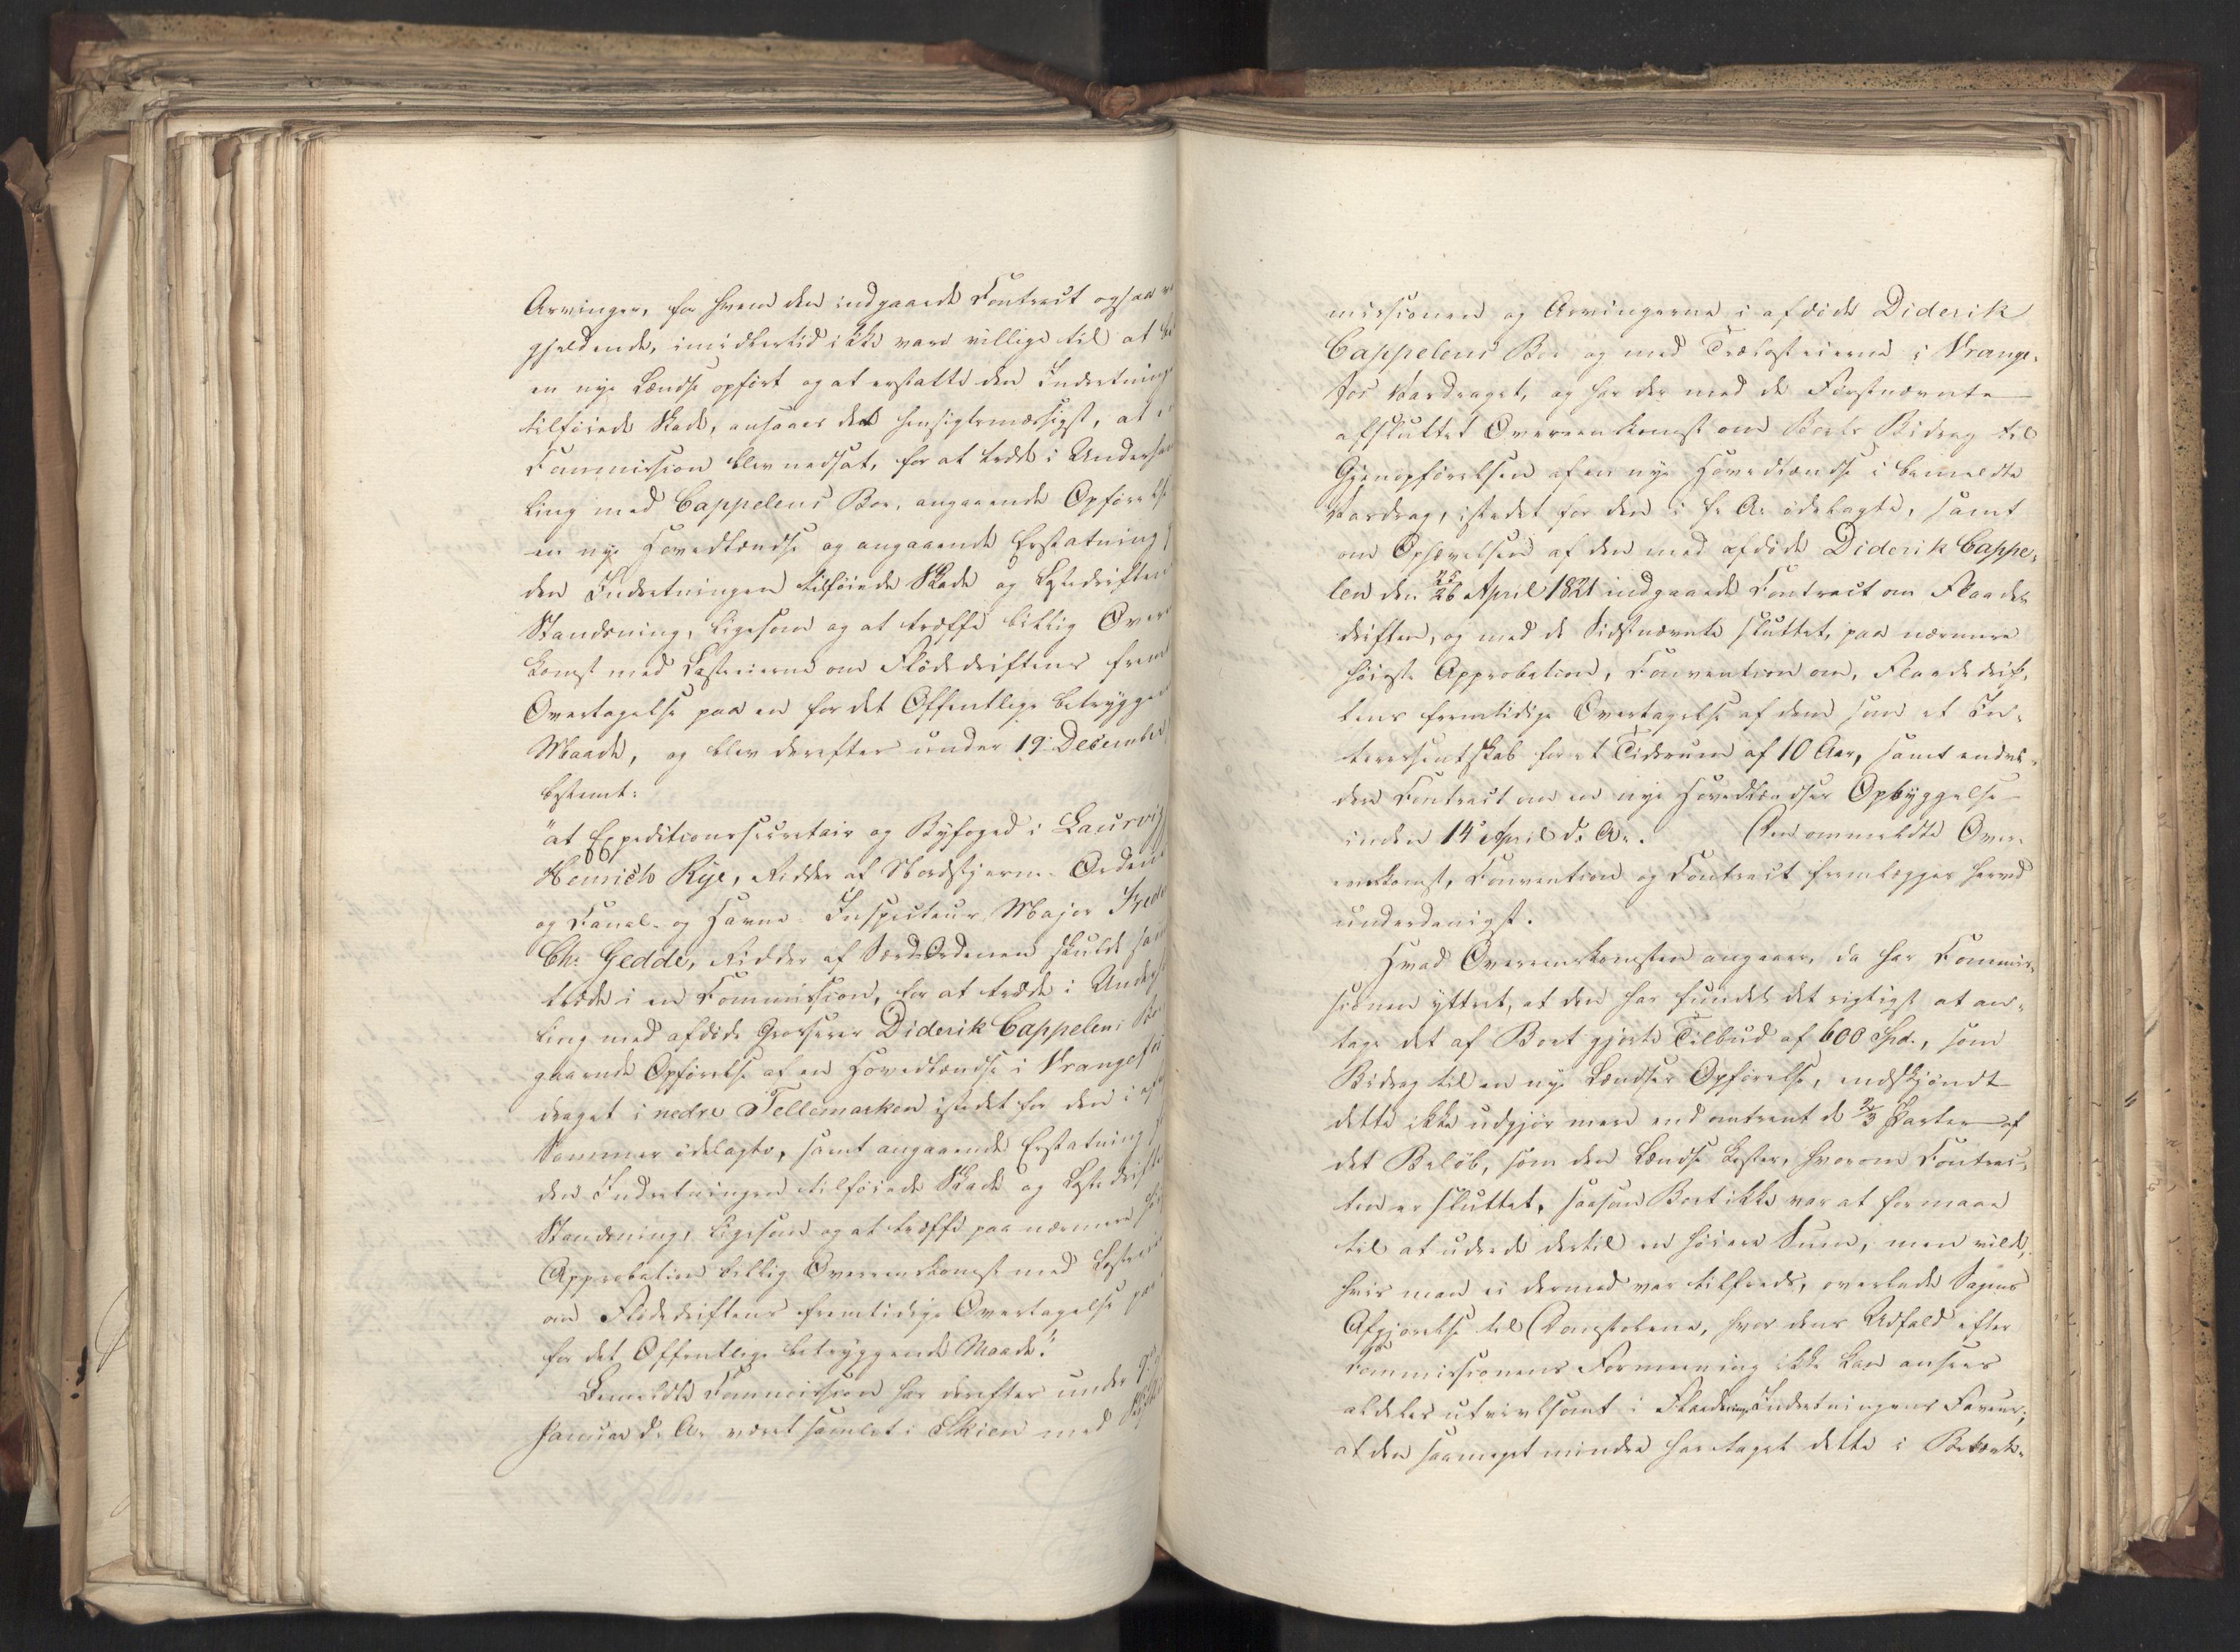 Arvinger, for hvem den indgaaede Contract ogsaa
gjeldende, imidlertid ikke vare villige til at
en nye Lændse opført og at erstatte den Indretningen
tilføiede Skade, ansaaes det hensigtsmæssigst, at
Commission blev nedsat, for at træde i Underhand
ling med Cappelens Boe, angaaende Opførelse
en nye Hovedlændse og angaaende Erstatning
den Indretningen tilføiede Skade og Lastedriftens
Standsning, ligesom og at træffe billig Overe
komst med Lasteeierne om Flødedriftens frem
Overtagelse paa en for det Offentlige betryggen
Maade, og blev derefter under 19 December
bestemt:
"at Expeditionssecretair og Byfoged i Laurvig
Henrich Rye, Ridder af Nordstjerne-Ordenen
og Canal- og Havne-Inspecteur, Major Frede
Chr. Gedde, Ridder af Sværdordenen skulde sam
træde i en Commission, for at træde i Underhand
ling med afdøde Grosserer Diderik Cappelens Boe
gaaende Opførelse af en Hovedlændse i Vrangfos
draget i nedre Tellemarken istedet for den i
Sommer ødelagte, samt angaaende Erstatning
den Indretningen tilføiede Skade og Lastedriftens
Standsning, ligesom og at træffe paa nærmere
Approbation billig Overeenskomst med Lasteeierne
om Flødedriftens fremtidige Overtagelse paa
for det Offentlige betryggende Maade."
Bemeldte Commission har derefter under
Januar d. A. været samlet i Skien med
missionen og Arvingerne i afdøde Diderik
Cappelens Boe og med Trælasteierne i Vrang-
fos Vasdraget, og har der med de Førstnævnte
afsluttet Overeenskomst om Boets Bidrag til
Gjenopførelsen af en nye Hovedlændse i bemeldte
Vasdrag, istedet for den i f. A. ødelagte, samt
om Ophævelsen af den med afdøde Diderik Cappe-
len den 25/26 April 1821 indgaaede Contract om Flaade-
driften, og med de Sidstnævnte sluttet, paa nærmere
høieste Approbation, Convention om, Flaadedrif-
tens fremtidige Overtagelse af dem som et In-
teressentskab for et Tidsrum af 10 Aar, samt endvi-
dere Contract om en nye Hovedlændses Opbyggelse
inden 14 April d. A. Den ommeldte Over-
eenskomst, Convention og Contract fremlægges herved
underdanigst.
Hvad Overeenskomsten angaaer, da har Commis-
sionen yttret, at den har fundet det rigtigst at an-
tage det af Boet gjorte Tilbud af 600 Spd., som
Bidrag til en nye Lændses Opførelse, endskjøndt
dette ikke udgjør mere end omtrent de 2/3 Parter af
det Beløb, som den Lændse koster, hvorom Contrac-
ten er sluttet, saasom Boet ikke var at formaae
til at udrede dertil en høiere Sum, men vilde,
hvis man ei dermed var tilfreds, overlade Sagens
Afgjørelse til Domstolene, hvor dens Udfald efter
Commissionens Formeening ikke kan ansees
aldeles utvivlsomt i Flaadnings Indretningens Faveur;
at den saameget mindre har taget dette i Betænk-